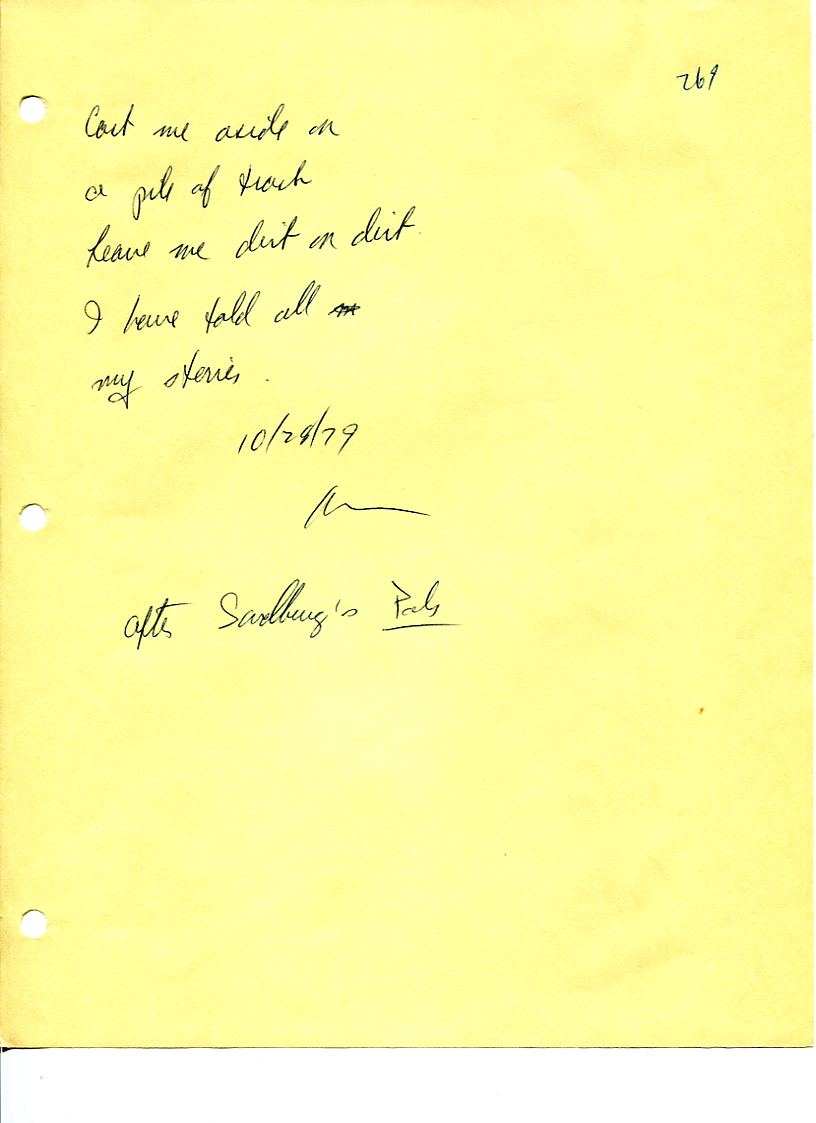 269
Cast me aside on
a pile of trash
Leave me dirt on dirt.
I have told all
my stories.
10/28/79
after Sandburg's Pals